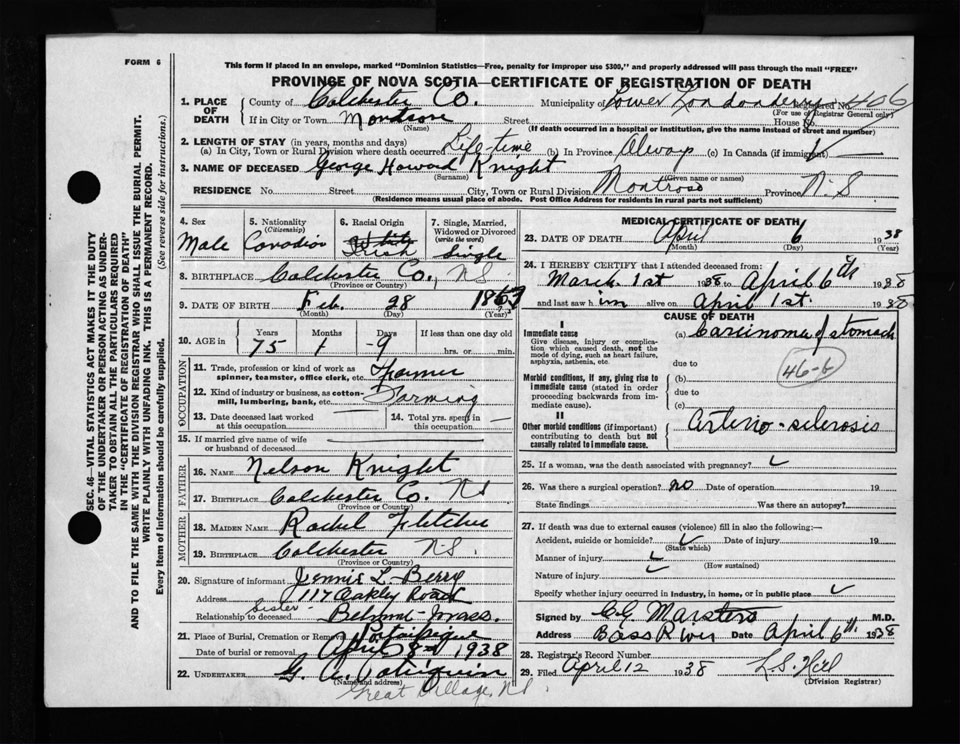 FORM 6
This form if placed in an envelope, marked "Dominion Statistics—Free, penalty for improper use $300," and properly addressed will pass through the mail "FREE"
PROVINCE OF NOVA SCOTIA—CERTIFICATE OF REGISTRATION OF DEATH
1. PLACE OF DEATH
County of Colchester Co. Municipality of Lower Londonderry Registered No. 406
(For use of Registrar General only)
If in City or Town Montrose Street House No.
(Name) (If death occurred in a hospital or institution, give the name instead of street and number)
2. LENGTH OF STAY (in years, months and days)
(a) In City, Town or Rural Division where death occurred Life time (b) In Province Always (c) In Canada (if immigrant)
3. NAME OF DECEASED George Howard Knight
(Surname) (Given name or names)
RESIDENCE No. Street City, Town or Rural Division Montrose Province N.S
(Residence means usual place of abode. Post Office Address for residents in rural parts not sufficient)
4. Sex
Male
5. Nationality
(Citizenship)
Canadian
6. Racial Origin
White
Irish
7. Single, Married, Widowed or Divorced
(write the word)
Single
8. BIRTHPLACE Colchester Co., N S
(Province or Country)
9. DATE OF BIRTH Feb. 28 1863
(Month) (Day) (Year)
10. AGE in
Years Months Days If less than one day old
75 1 9 hrs. or min.
OCCUPATION
11. Trade, profession or kind of work as spinner, teamster, office clerk, etc. Farmer
12. Kind of industry or business, as cotton-mill, lumbering, bank, etc. Farming
13. Date deceased last worked at this occupation
14. Total yrs. spent in this occupation
15. If married give name of wife or husband of deceased
FATHER
16. NAME Nelson Knight
17. BIRTHPLACE Colchester Co. N S
(Province or Country)
MOTHER
18. MAIDEN NAME Rachel Fletcher
19. BIRTHPLACE Colchester N.S.
(Province or Country)
20. Signature of informant Jennie L. Berry
Address 117 Oakley Road
Relationship to deceased Sister Belmont Mass.
21. Place of Burial, Cremation or Removal Portaupique
Date of burial or removal April 8th 1938
22. UNDERTAKER G. A.
(Name and address)
Great Village, N.S.
MEDICAL CERTIFICATE OF DEATH
23. DATE OF DEATH April 6 1938
(Month) (Day) (Year)
24. I HEREBY CERTIFY that I attended deceased from:
March 1st 1938 to April 6th 1938
and last saw him alive on April 1st. 1938
CAUSE OF DEATH
I
Immediate cause (a) Carcinoma of stomach
Give disease, injury or complication which caused death, not the mode of dying, such as heart failure, asphyxia, asthenia, etc.
due to
46-b
Morbid conditions, if any, giving rise to immediate cause (stated in order proceeding backwards from immediate cause).
(b)
due to
(c)
II
Other morbid conditions (if important) contributing to death but not causally related to immediate cause.
Arterio-sclerosis
25. If a woman, was the death associated with pregnancy?
26. Was there a surgical operation? no Date of operation 19
State findings Was there an autopsy?
27. If death was due to external causes (violence) fill in also the following:—
Accident, suicide or homicide? Date of injury 19
(State which)
Manner of injury
(How sustained)
Nature of injury
Specify whether injury occurred in industry, in home, or in public place
Signed by C.E. Marsters M.D.
Address Bass River Date April 6th 1938
28. Registrar's Record Number
29. Filed April 12 1938
(Division Registrar)
SEC. 46—VITAL STATISTICS ACT MAKES IT THE DUTY
OF THE UNDERTAKER OR PERSON ACTING AS UNDER-
TAKER TO OBTAIN ALL THE PARTICULARS REQUIRED
IN THE "CERTIFICATE OF REGISTRATION OF DEATH"
AND TO FILE THE SAME WITH THE DIVISION REGISTRAR WHO SHALL ISSUE THE BURIAL PERMIT.
WRITE PLAINLY WITH UNFADING INK. THIS IS A PERMANENT RECORD.
Every item of information should be carefully supplied. (See reverse side for instructions.)